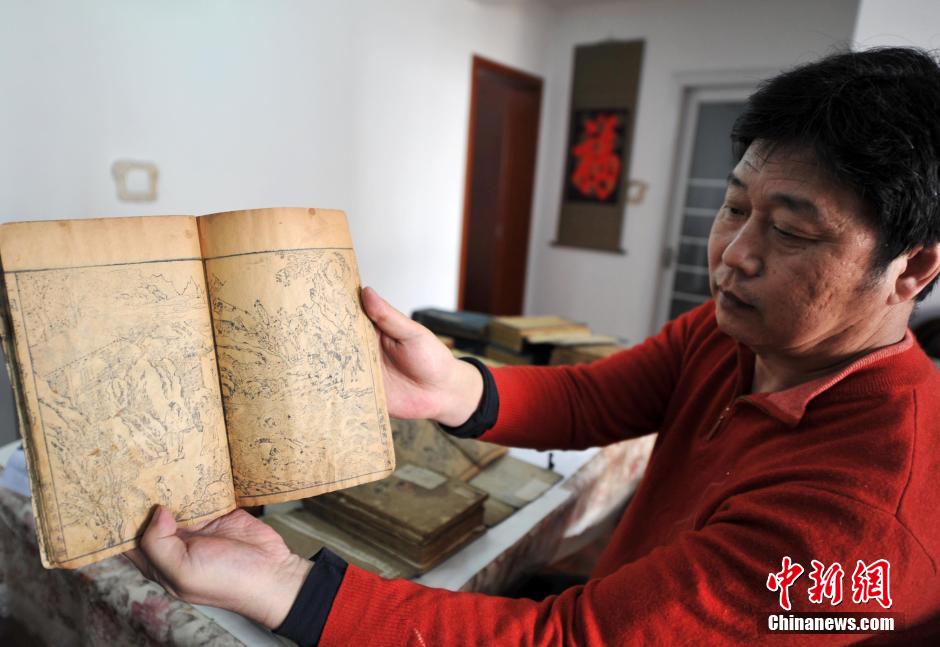 福
中新网
Chinanews.com